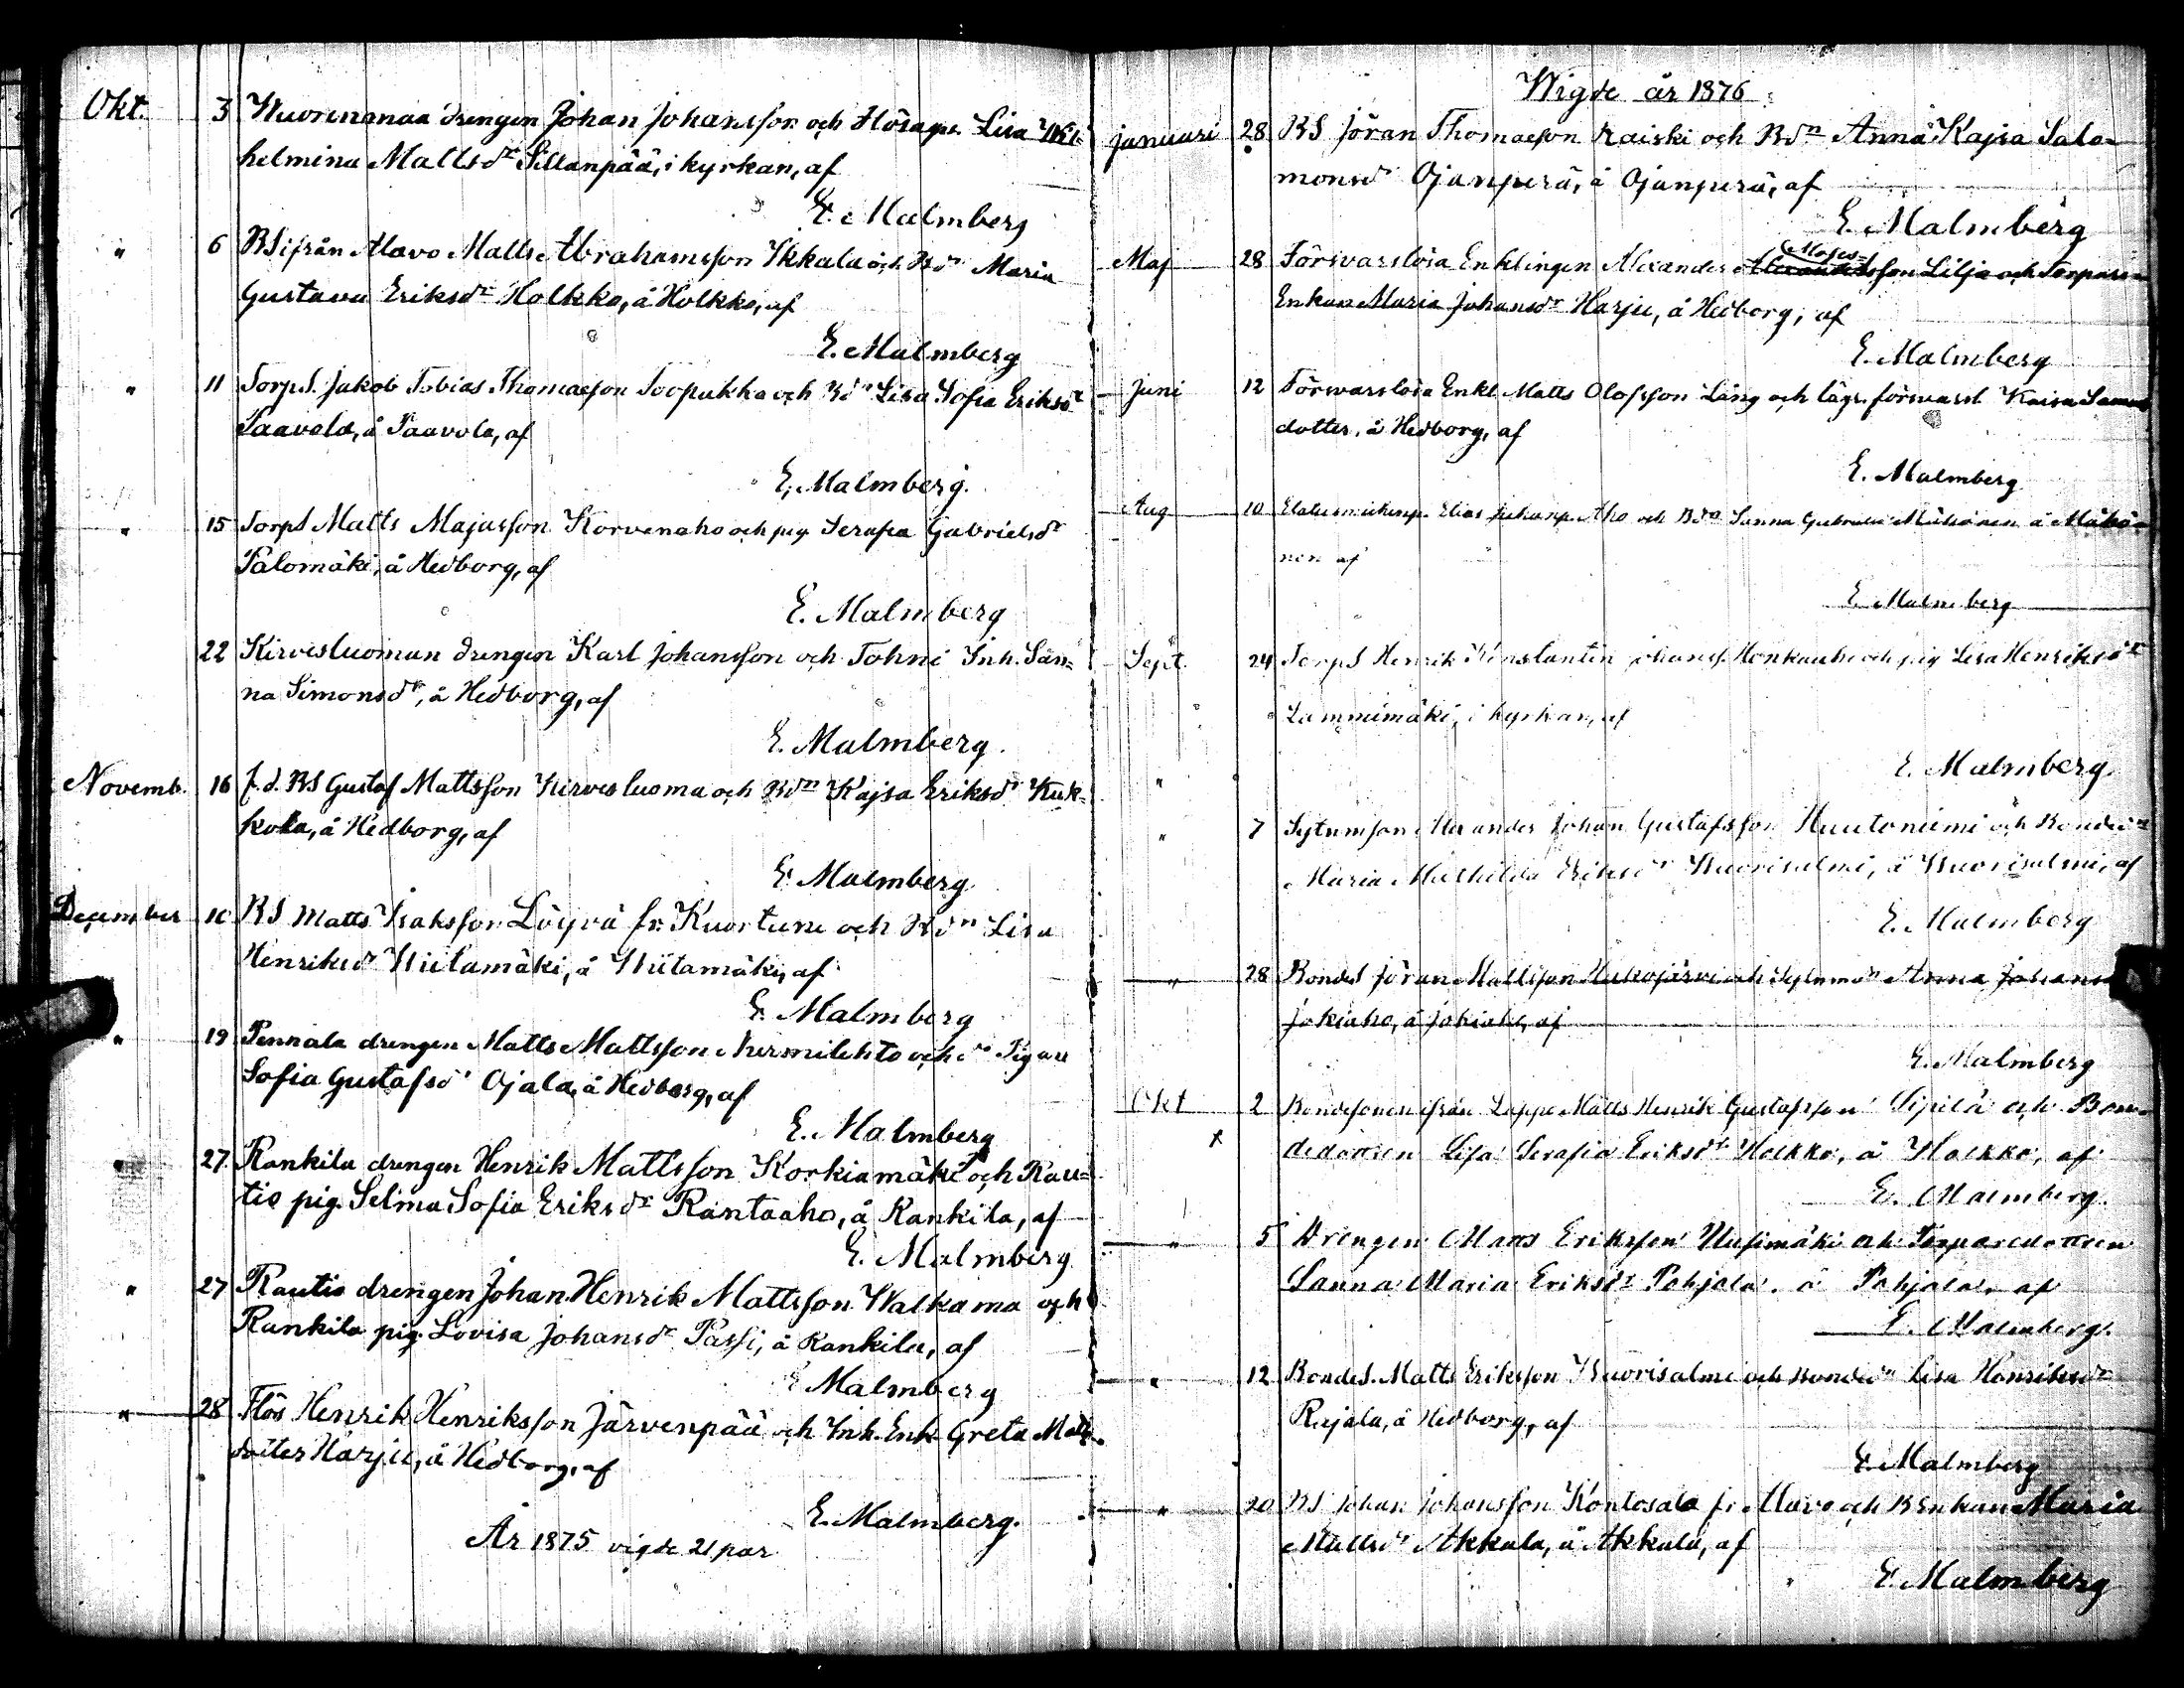 Okt. 3 Wuorenmaa drengen Johan Johansson och Hösape. Lisa Wil-
helmina Mattsdr Sillanpää, i kyrkan, af
E. Malmberg
" 6 BS ifrån Alavo Matts Abrahamsson Ikkala och Bdn Maria
Gustava Eriksdr Holkko, å Holkko, af
E. Malmberg
" 11 TorpS. Jakob Tobias Thomasson Soopukka och Bdn Lisa Sofia Eriksdr
Paavola, å Paavola, af
E. Malmberg.
" 15 TorpS Matts Majasson Korvenaho och pig. Serafia Gabrielsdr
Palomäki, å Hedborg, af
E. Malmberg
22 Kirvesluoman drengen Karl Johansson och Tohni Inh. San-
na Simonsdr, å Hedborg, af
E. Malmberg.
Novemb. 16 f.d. BS Gustaf Mattsson Kirvesluoma och Bdn Kajsa Eriksdr Kuk-
kola, å Hedborg, af
E. Malmberg
December 10 BS Matts Isaksson Löyvä fr. Kuortane och Bdn Lisa
Henriksdr Wiitamäki, å Wiitamäki, af
E. Malmberg
" 19 Pennala drengen Matts Mattsson Nurmilehto och dn Pigan
Sofia Gustafsdr Ojala, å Hedborg, af
E. Malmberg
" 27. Rankila drengen Henrik Mattsson Korkiamäki och Rau-
tio pig. Selma Sofia Eriksdr Rantaaho, å Rankila, af
E. Malmberg
" 27 Rautio drengen Johan Henrik Mattsson Walkama och
Rankila pig. Lovisa Johansdr Passi, å Rankila, af
E Malmberg
" 28 Hös Henrik Henriksson Järvenpää och Inh. Enk. Greta Matts-
dotter Harju, å Hedborg, af
E. Malmberg.
År 1875 vigde 21 par
Wigde år 1876
januari 28 BS Jöran Thomasson Raiski och Bdn Anna Kajsa Salo-
monsdr Ojanperä, å Ojanperä, af
E. Malmberg
Maj 28 Förswarslösa Enklingen Alexander Moses Alexandersson Lilja och Torpare
Enkan Maria Johansdr Harju, å Hedborg, af
E. Malmberg
Juni 12 Förswarslösa Enkl. Matts Olofsson Lång och lägs. förswarsl Kaisa
dotter, å Hedborg, af
E. Malmberg
Aug 10 Elias Aho och Bdn Sanna Mähönen å Mähö-
nen af
E. Malmberg
Sept. 24 TorpS Henrik Konstantin Johanss. Honkaaho och pig Lisa Henriksdr
Lamminmäki, i kyrkan, af
E. Malmberg
" 7 Sytumson Alexander Johan Gustafsson Huutoniemi och Bondedr
Maria Mathilda Eriksdr Wuorisalmi, å Wuorisalmi, af
E. Malmberg
" 28 BondeS Jöran Mattsson och Sytumdn Anna Johansd
Jokiaho, å Jokiaho, af
E. Malmberg
Okt 2 Bondesonen ifrån Lappo Matts Henrik Gustafsson Sipilä och Bon-
dedottren Lisa Serafia Eriksdr Holkko, å Holkko, af
E. Malmberg.
" 5 Drengen Matts Eriksson Uusimäki och Torparedottren
Sanna Maria Eriksdr Pohjola, å Pohjola, af
E. Malmberg.
" 12 BondeS. Matts Eriksson Wuorisalmi och Bondedn Lisa Henriksdr
Rajala, å Hedborg, af
E. Malmberg
" 20 BS Johan Johansson Kontosala fr Alavo och BEnkan Maria
Mattsdr Akkala, å Akkala, af
E. Malmberg